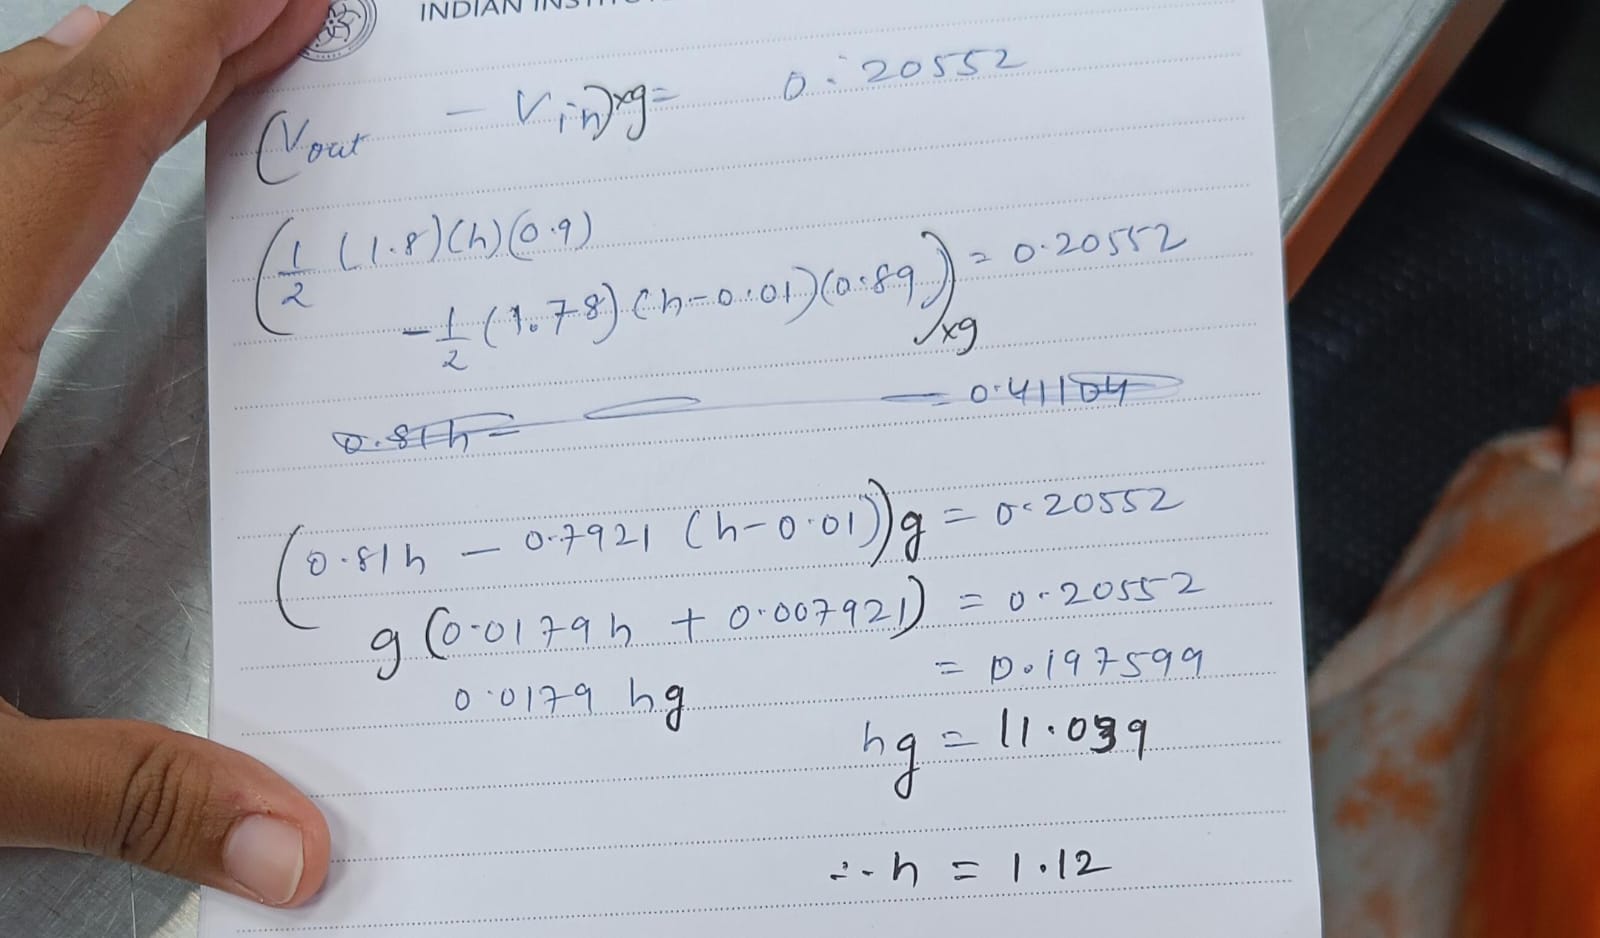 INDIAN
(Vout - Vin)xg = 0.20552
(1/2 (1.8)(h)(0.9)
- 1/2 (1.78)(h-0.01)(0.89))xg = 0.20552
0.81h = = 0.41104
(0.81h - 0.7921 (h-0.01))g = 0.20552
g(0.0179h + 0.007921) = 0.20552
0.0179 hg = 0.197599
hg = 11.039
∴ h = 1.12